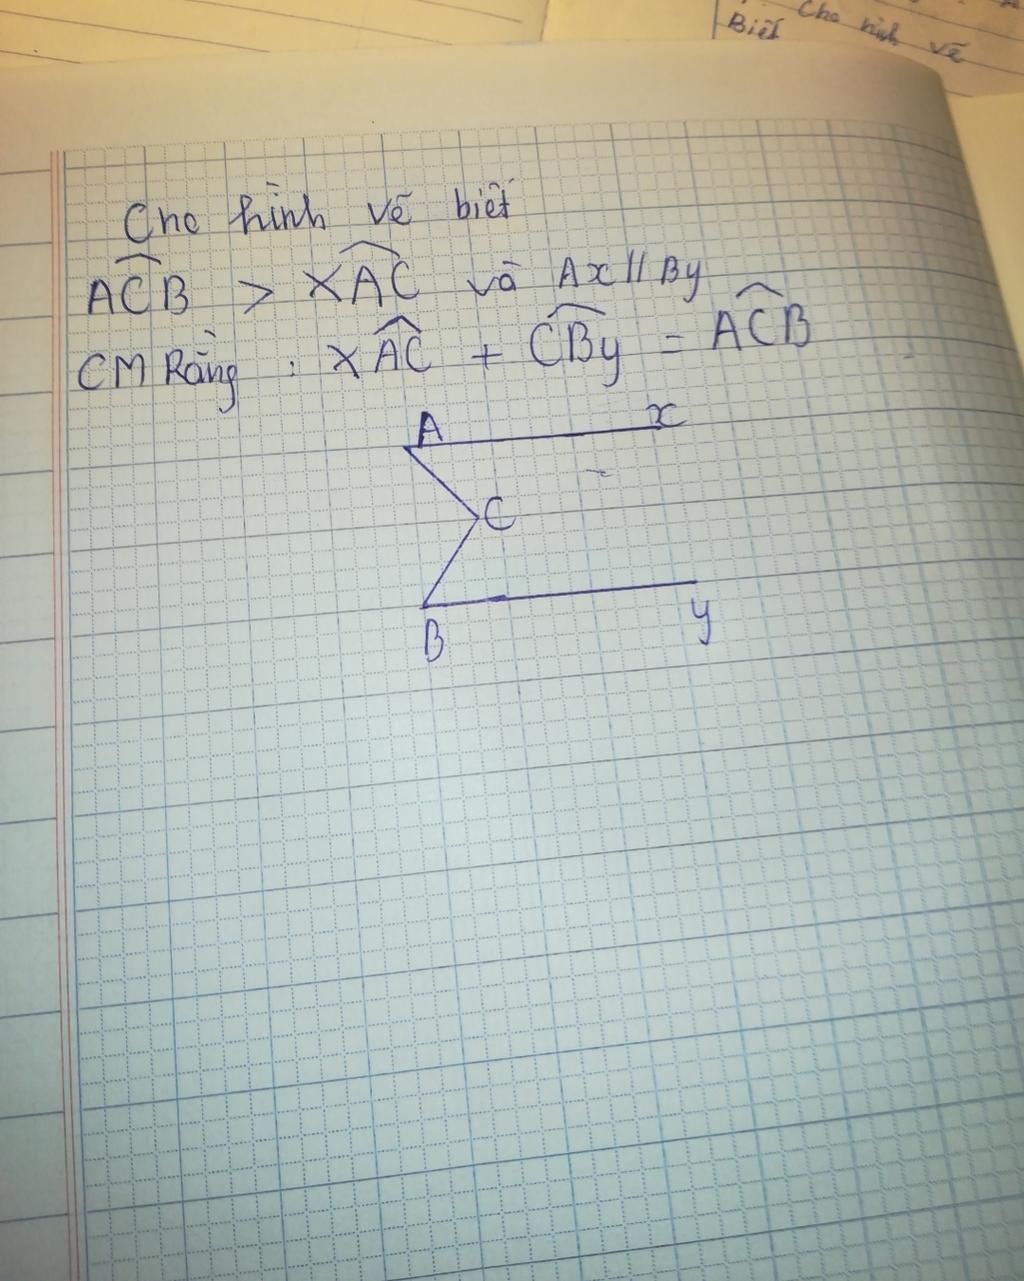 Cho hình vẽ
Biết
Cho hình vẽ biết
ACB > XAC và Ax // By
CM Rằng : XAC + CBy = ACB
A x
C
B y